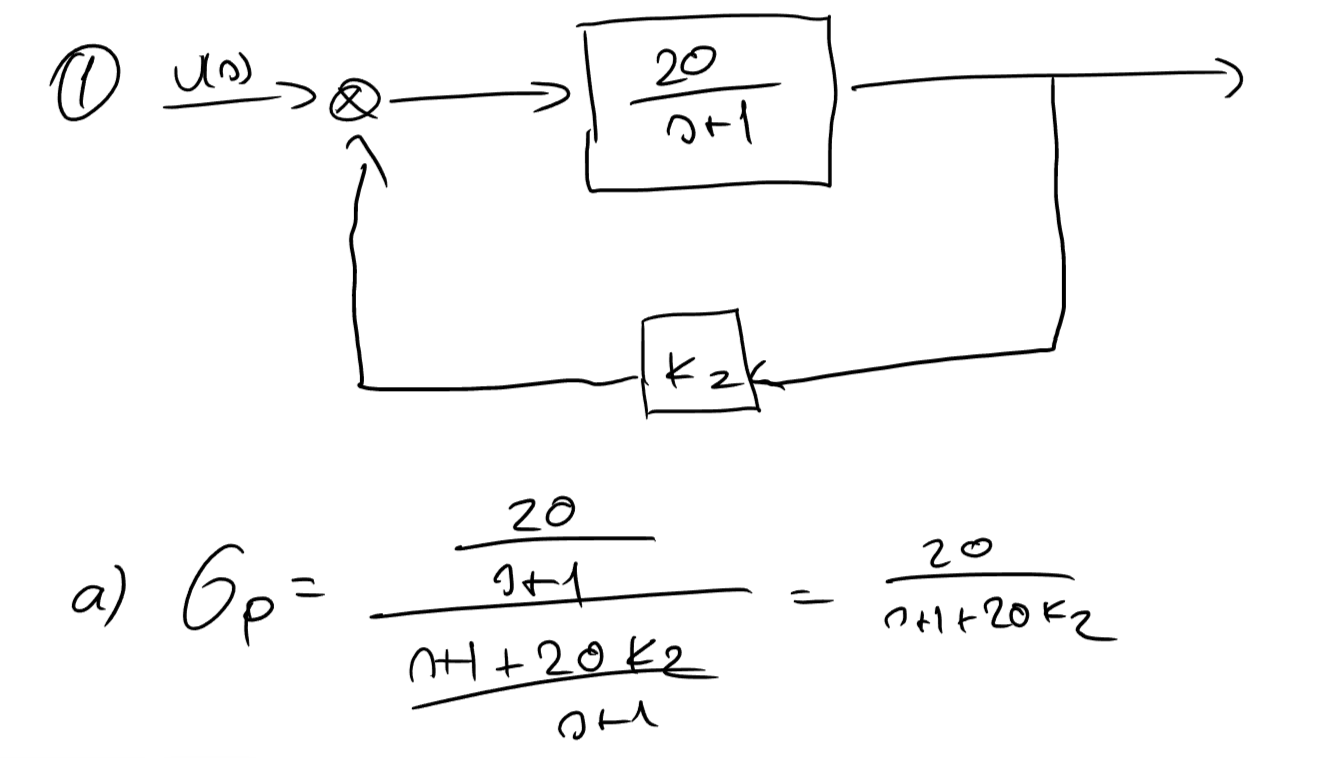 ① U(s)
20
s+1
K2
a) Gp = (20/(s+1))/((s+1+20K2)/(s+1)) = 20/(s+1+20K2)